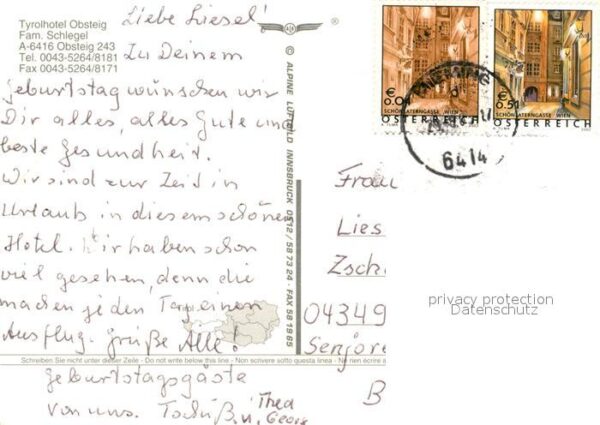 Tyrolhotel Obsteig
Fam. Schlegel
A-6416 Obsteig 243
Tel. 0043-5264/8181
Fax 0043-5264/8171
Liebe Liesel!
Zu Deinem
Geburtstag wünschen wir
Dir alles, alles Gute und
beste Gesundheit.
Wir sind zur Zeit in
Urlaub in diesem schönen
Hotel. Wir haben schon
viel gesehen, denn die
machen jeden Tag einen
Ausflug. Grüße Alle!
Schreiben Sie nicht unter dieser Zeile - Do not write below this line - Non scrivere sotto questa linea - Ne rien écrire
Geburtstagsgäste
von uns. Tschüß, Thea
u. Georg
© ALPINE LUFTBILD INNSBRUCK 0512 / 58 73 24 - FAX 58 19 85
€ 0.04
SCHÖNLATERNGASSE WIEN
ÖSTERREICH
€ 0.51
SCHÖNLATERNGASSE WIEN
ÖSTERREICH
6414
Frau
Lies
Zsch
04349
Senjore
B
privacy protection
Datenschutz